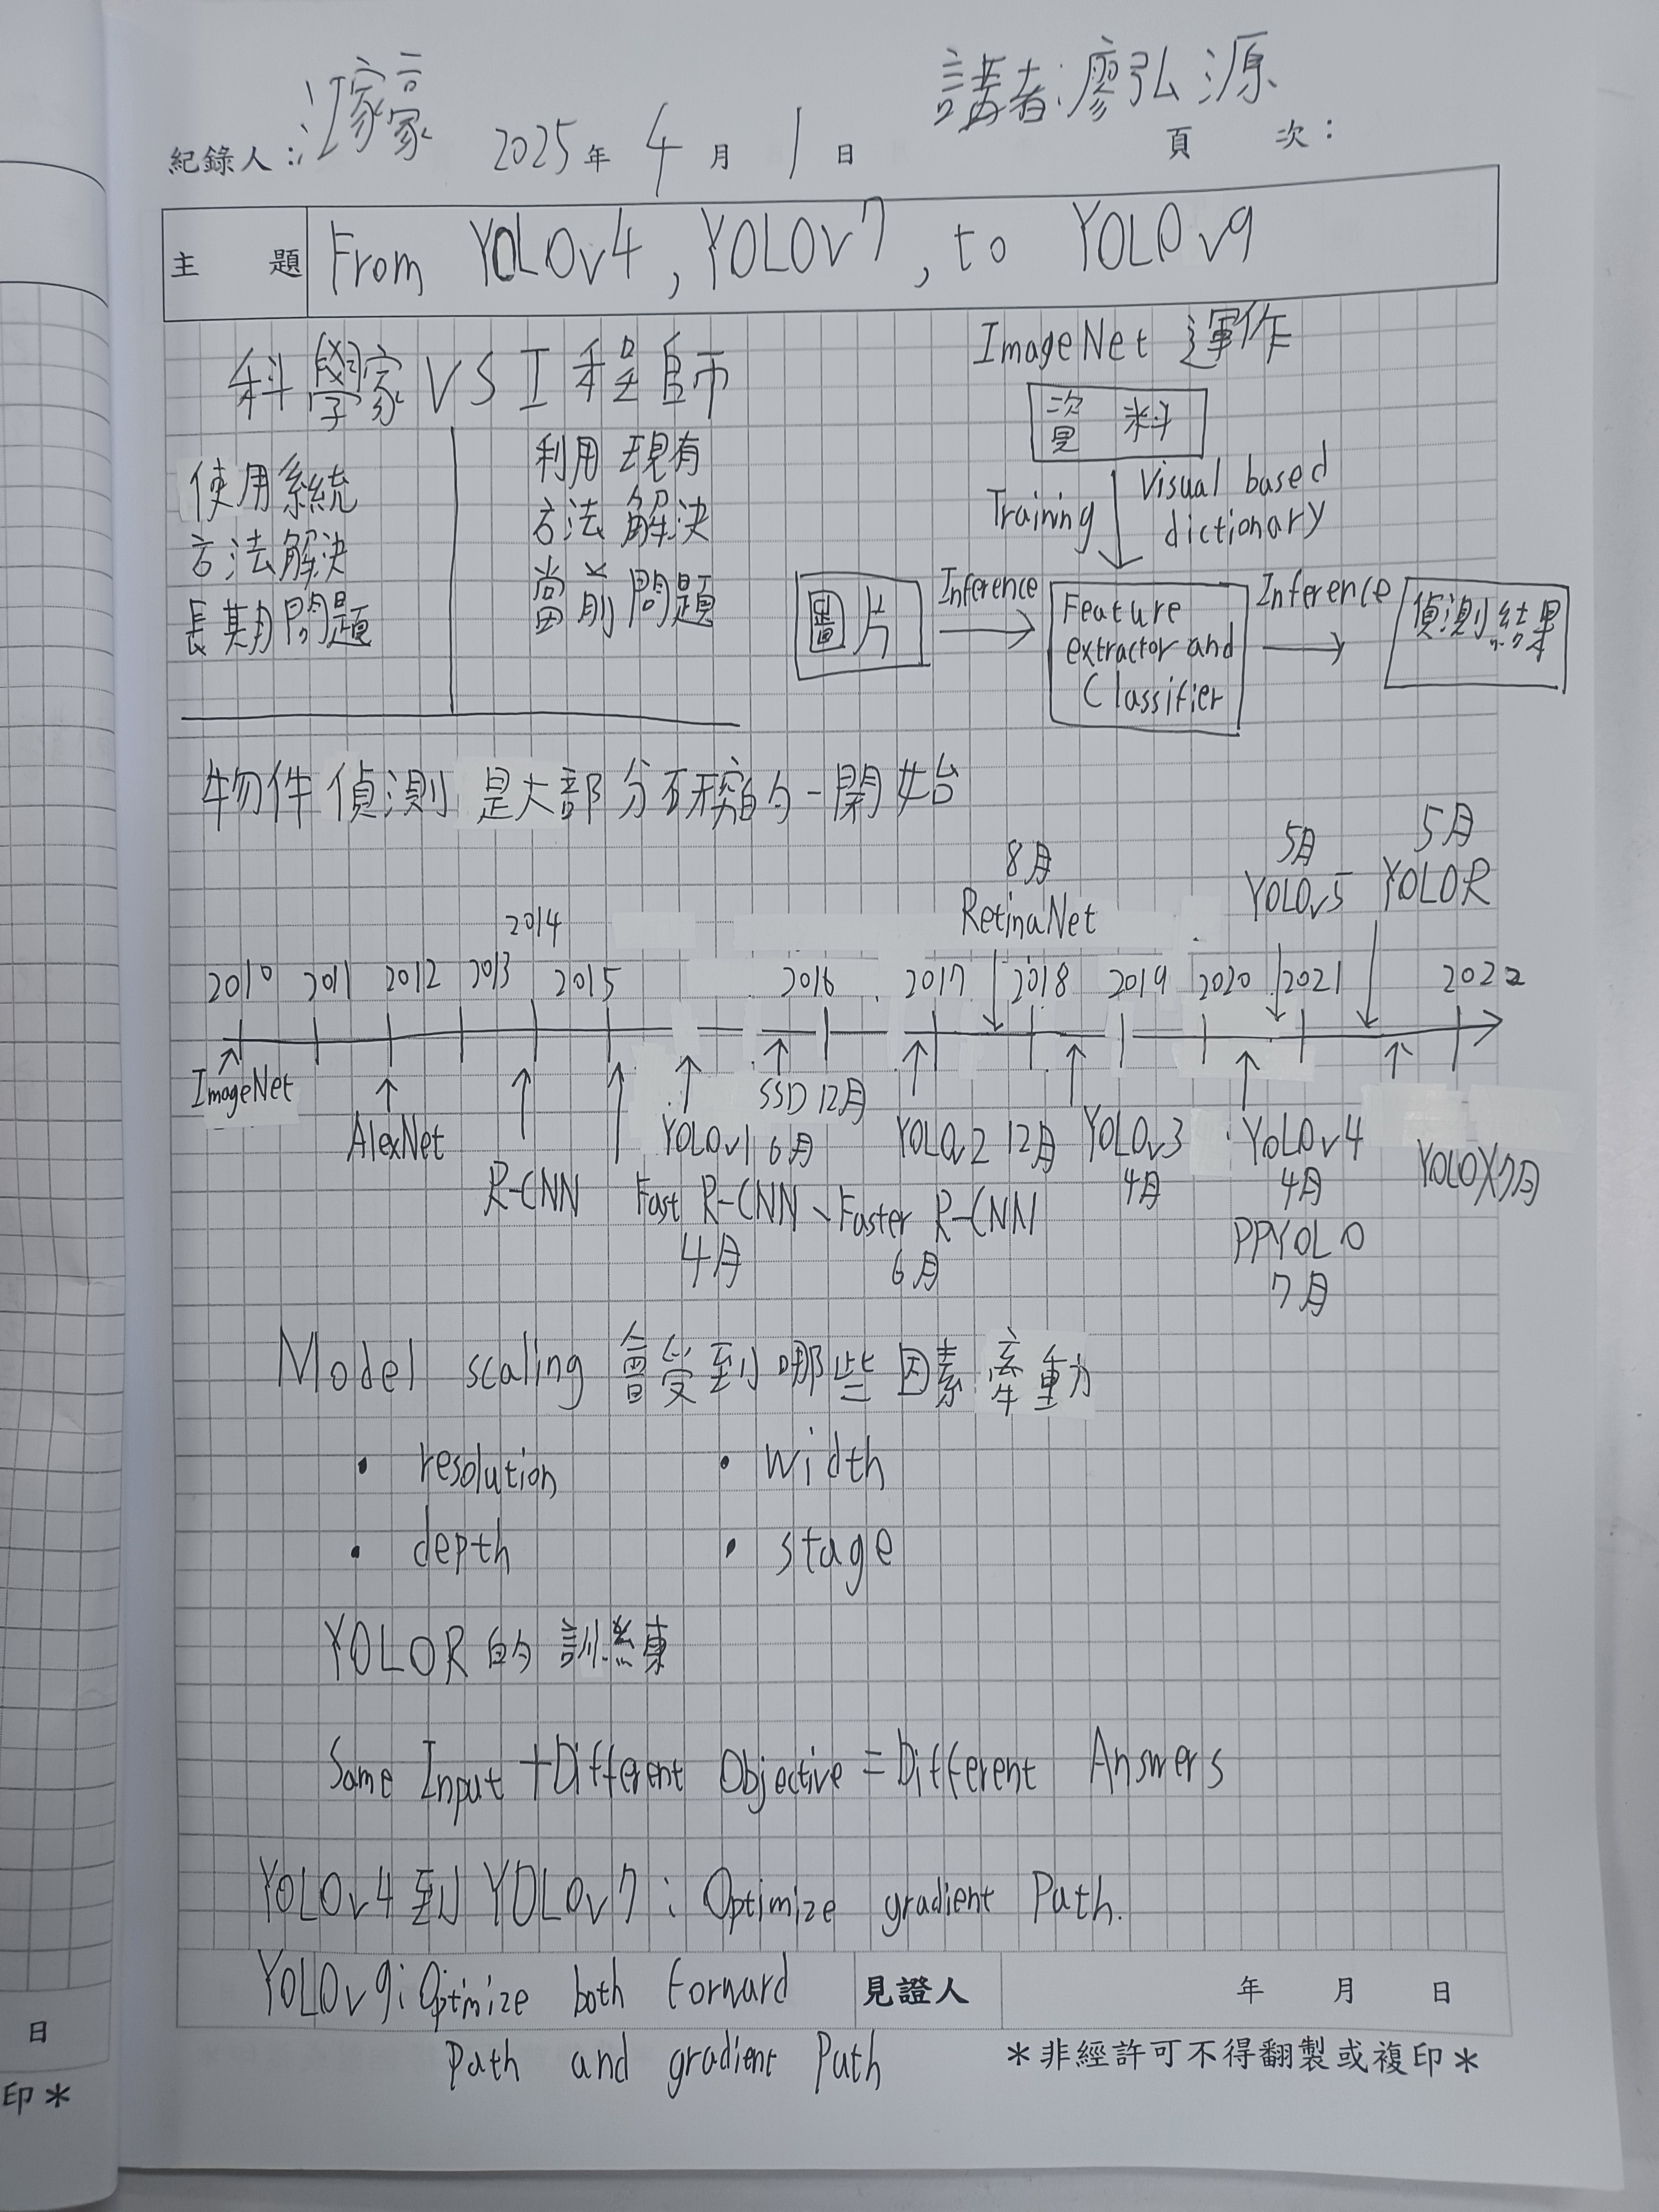 講者:廖弘源
紀錄人:汪家豪 2025年 4月 1日 頁 次:
主 題 From YOLOv4, YOLOv7, to YOLOv9
科學家 VS 工程師
使用系統
方法解決
長期問題
利用現有
方法解決
當前問題
ImageNet 運作
資 料
Training
Visual based
dictionary
圖片
Inference
Feature
extractor and
Classifier
Inference
偵測結果
物件偵測是大部分研究的一開始
8月
RetinaNet
5月
YOLOv5
5月
YOLOR
2010 2011 2012 2013 2014 2015 2016 2017 2018 2019 2020 2021 2022
ImageNet
AlexNet
R-CNN
YOLOv1 6月
SSD 12月
YOLOv2 12月
YOLOv3
4月
YOLOv4
4月
PPYOLO
7月
YOLOX 7月
Fast R-CNN、Faster R-CNN
4月 6月
Model scaling 會受到哪些因素牽動
• resolution • width
• depth • stage
YOLOR的訓練
Same Input + Different Objective = Different Answers
YOLOv4到YOLOv7: Optimize gradient Path.
YOLOv9: Optimize both Forward
Path and gradient Path
見證人 年 月 日
*非經許可不得翻製或複印*
日
印*